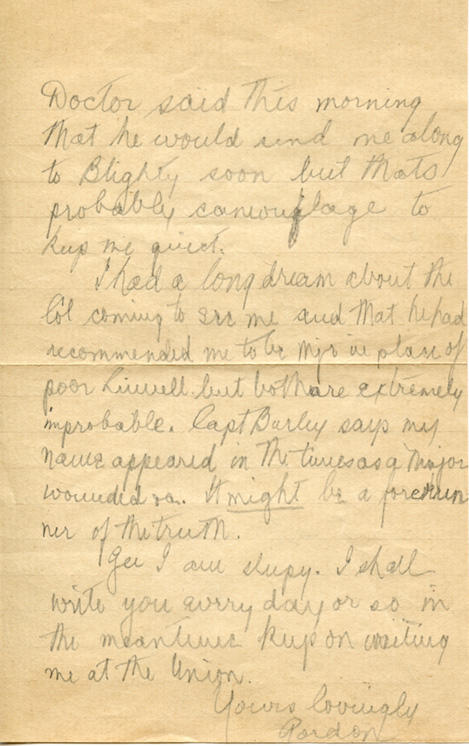 Doctor said this morning
that he would send me along
to Blighty soon but thats
probably camouflage to
keep me quiet.
I had a long dream about the
Col coming to see me and that he had
recommended me to be Mjr in place of
poor but both are extremely
improbable. Capt Burley says my
name appeared in the times as a Major
wounded It might be a forerun
ner of the truth.
Gee I am sleepy. I shall
write you every day or so in
the meantime keep on writing
me at the Union.
Yours lovingly